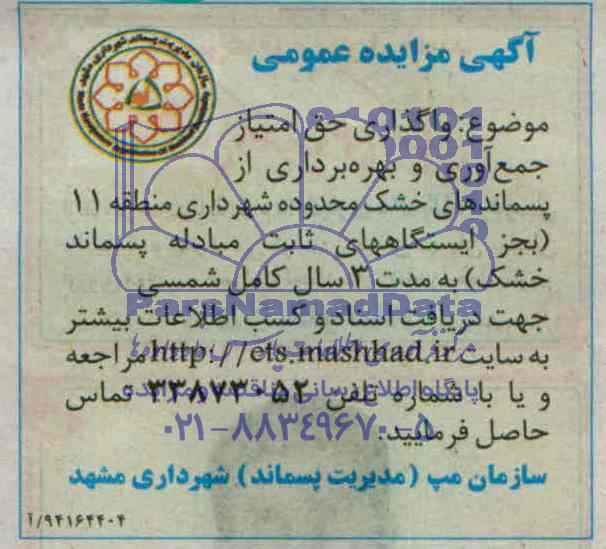 آگهی مزایده عمومی
موضوع: واگذاری حق امتیاز
جمع‌آوری و بهره‌برداری از
پسماندهای خشک محدوده شهرداری منطقه ۱۱
(بجز ایستگاههای ثابت مبادله پسماند
خشک) به مدت ۳ سال کامل شمسی
ParsNamadData
جهت دریافت اسناد و کسب اطلاعات بیشتر
به سایت http://ets.mashhad.ir مراجعه
و یا با شماره تلفن ۳۳۸۷۳۰۵۲ تماس
۰۲۱-۸۸۳۴۹۶۷۰-۵
حاصل فرمایید.
سازمان مپ (مدیریت پسماند) شهرداری مشهد
۹۴۱۶۴۴۰۴/آ